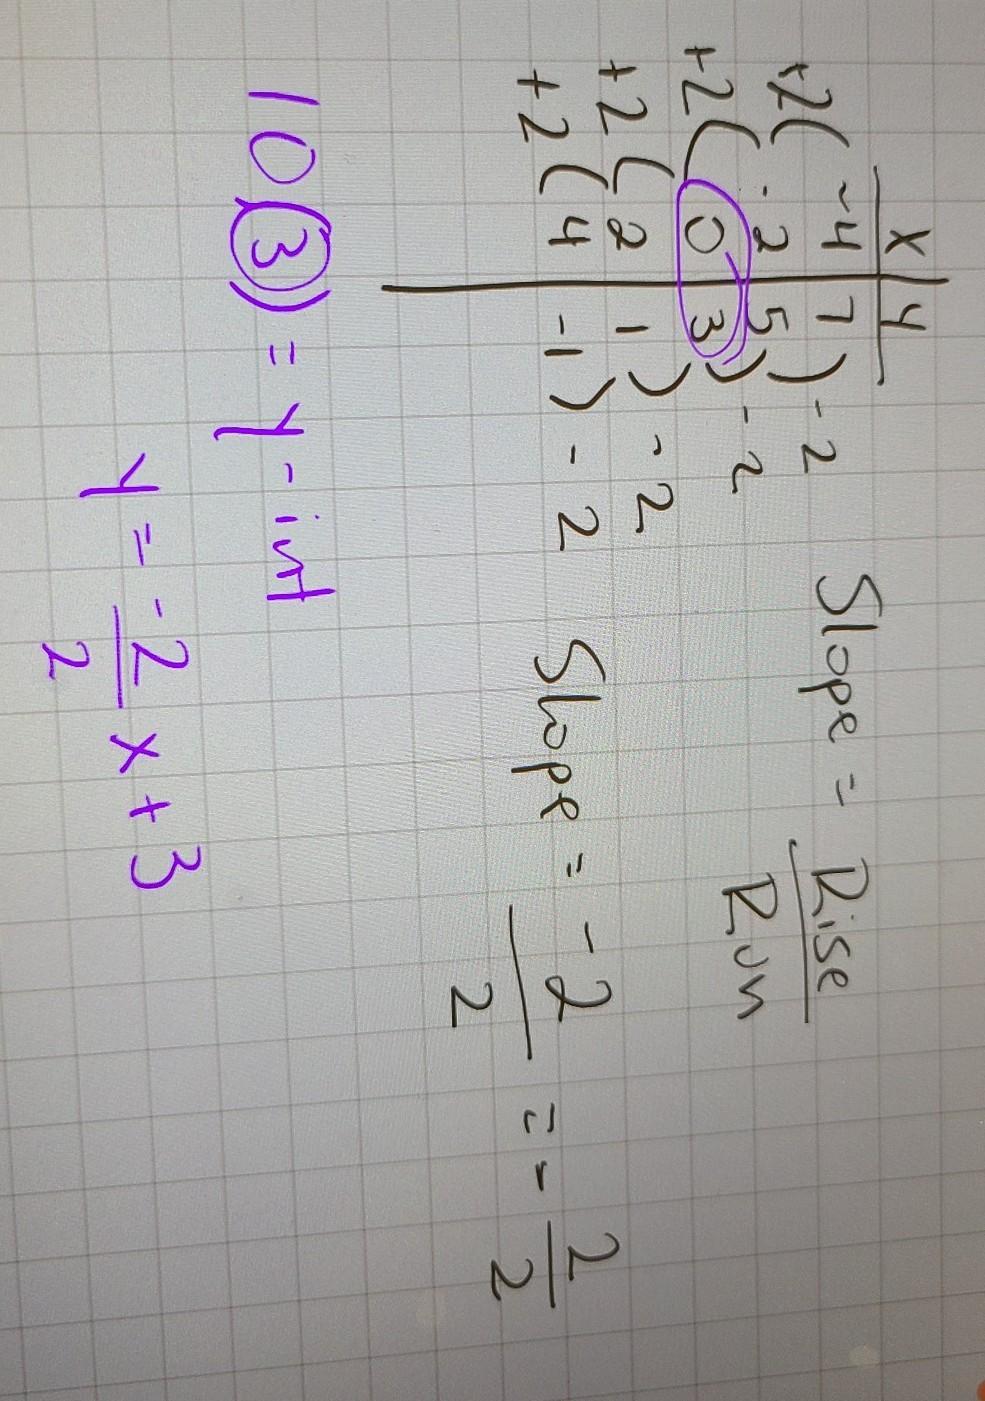 x | y
+2( -4 | 7 ) -2
+2( -2 | 5 ) -2
+2( 0 | 3 ) -2
+2( 2 | 1 ) -2
4 | -1
Slope = Rise / Run
Slope = -2 / 2 = - 2 / 2
10(3)) = y-int
y = -2 / 2 x + 3